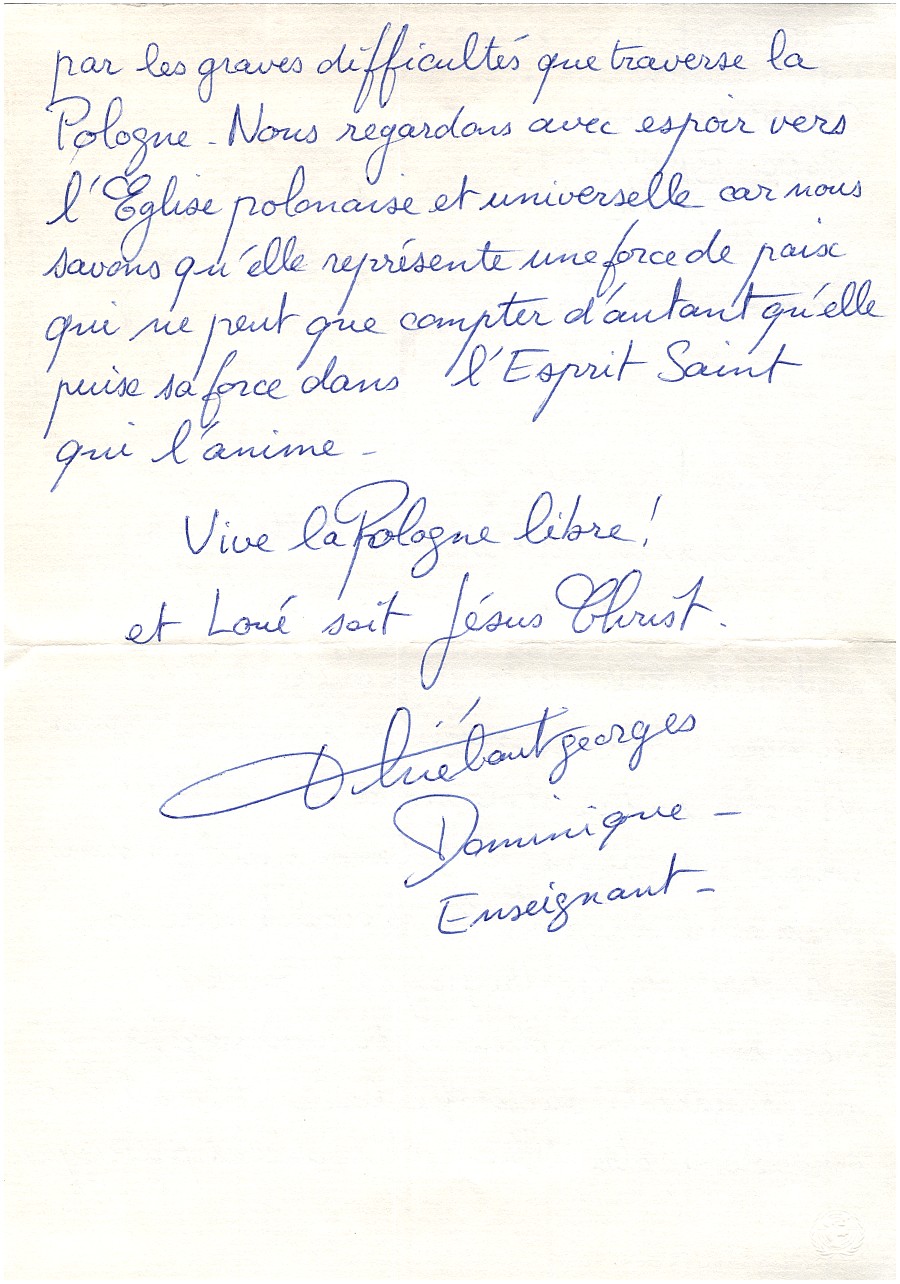 par les graves difficultés que traverse la
Pologne - Nous regardons avec espoir vers
l'Eglise polonaise et universelle car nous
savons qu'elle représente une force de paix
qui ne peut que compter d'autant qu'elle
puise sa force dans l'Esprit Saint
qui l'anime -
Vive la Pologne libre !
et Loué soit Jésus Christ.
Thiébautgeorges
Dominique -
Enseignant -